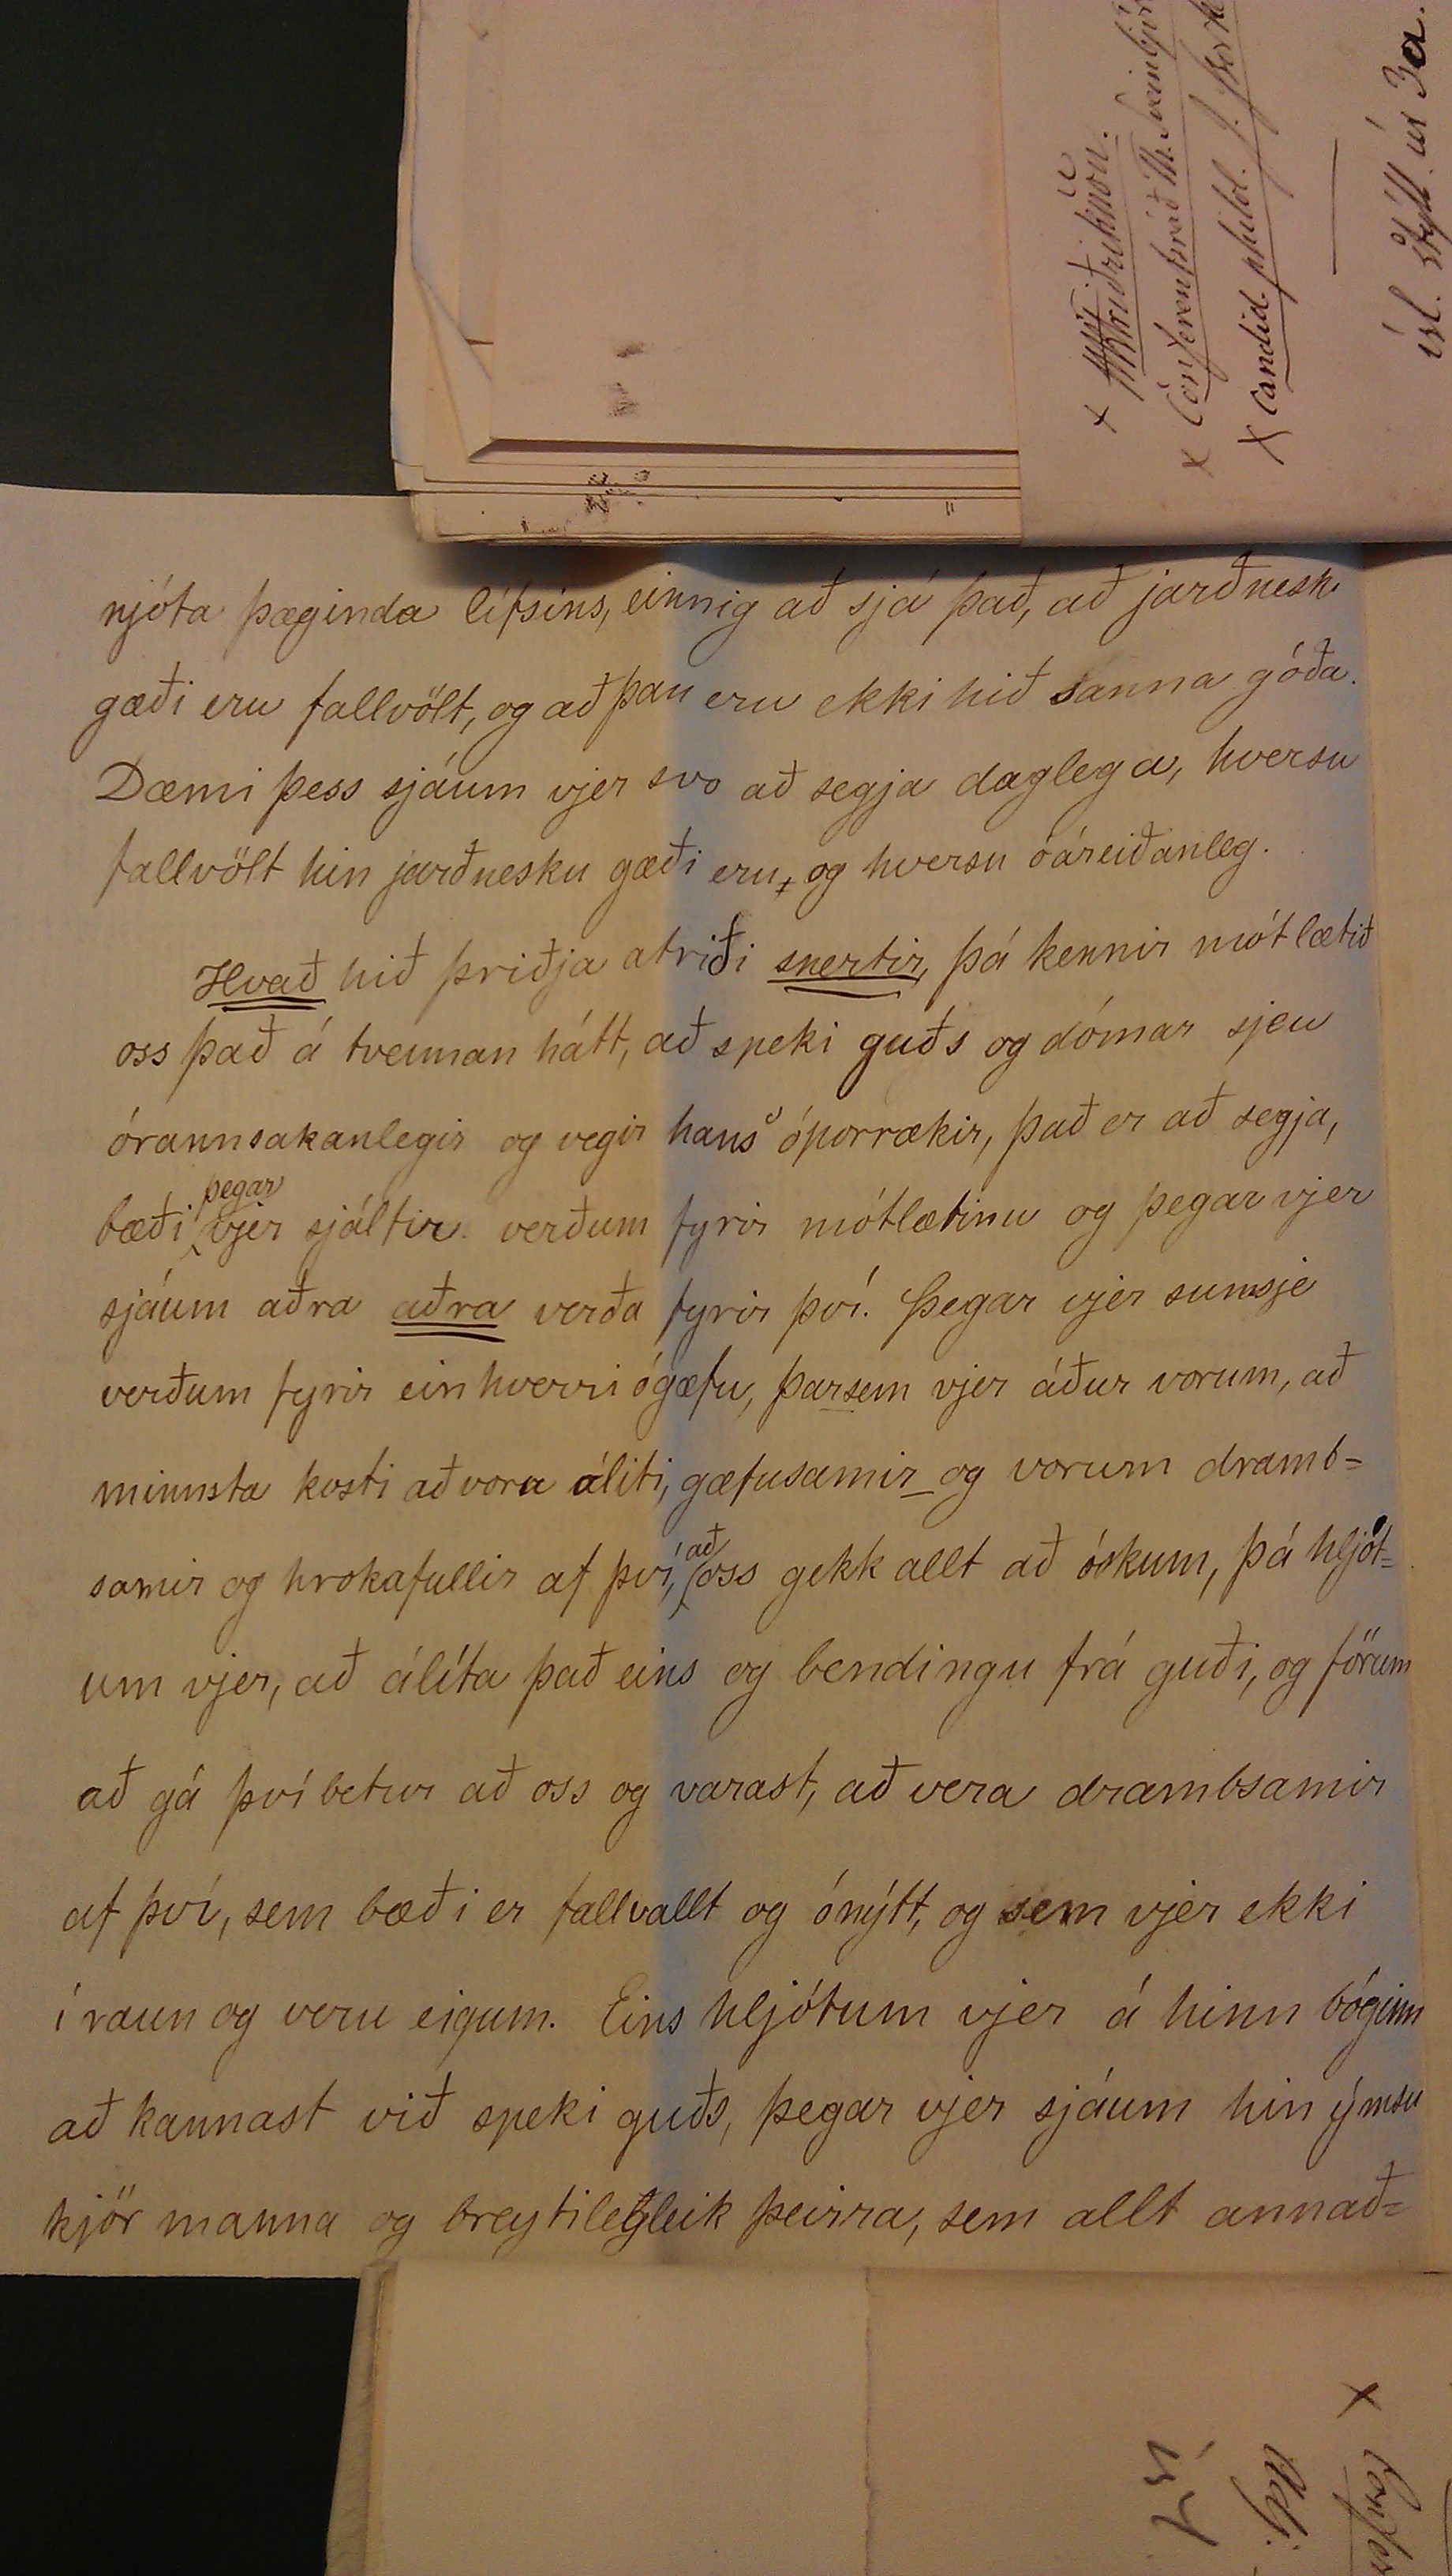 njóta þæginda lífsins, einnig að sjá það, að jarðnesk
gæði eru fallvölt, og að þau eru ekki hið sanna góða.
Dæmi þess sjáum vjer svo að segja daglega, hversu
fallvölt hin jarðnesku gæði eru, og hversu óáreiðanleg.
Hvað hið þriðja atriði snertir, þá kennir mótlætið
oss það á tvennan hátt, að speki guðs og dómar sjeu
órannsakanlegir og vegir hans óporrækir, það er að segja,
bæði þegar vjer sjálfir verðum fyrir mótlætinu og þegar vjer
sjáum aðra aðra verða fyrir því. Þegar vjer sumsje
verðum fyrir einhverri ógæfu, þarsem vjer áður vorum, að
minnsta kosti að voru áliti, gæfusamir og vorum dramb=
samir og hrokafullir af því, að oss gekk allt að óskum, þá hljót=
um vjer, að álíta það eins og bendingu frá guði, og förum
að gá því betur að oss og varast, að vera drambsamir
af því, sem bæði er fallvallt og ónýtt, og sem vjer ekki
í raun og veru eigum. Eins hljótum vjer á hinn bóginn
að kannast við speki guðs, þegar vjer sjáum hin ýmsu
kjör manna og breytilegleik þeirra, sem allt annað=
x Conferentsráð Th. Sveinbjör
x Candid. philol. J.
ísl. stýll. úr 3a.
x
Adj.